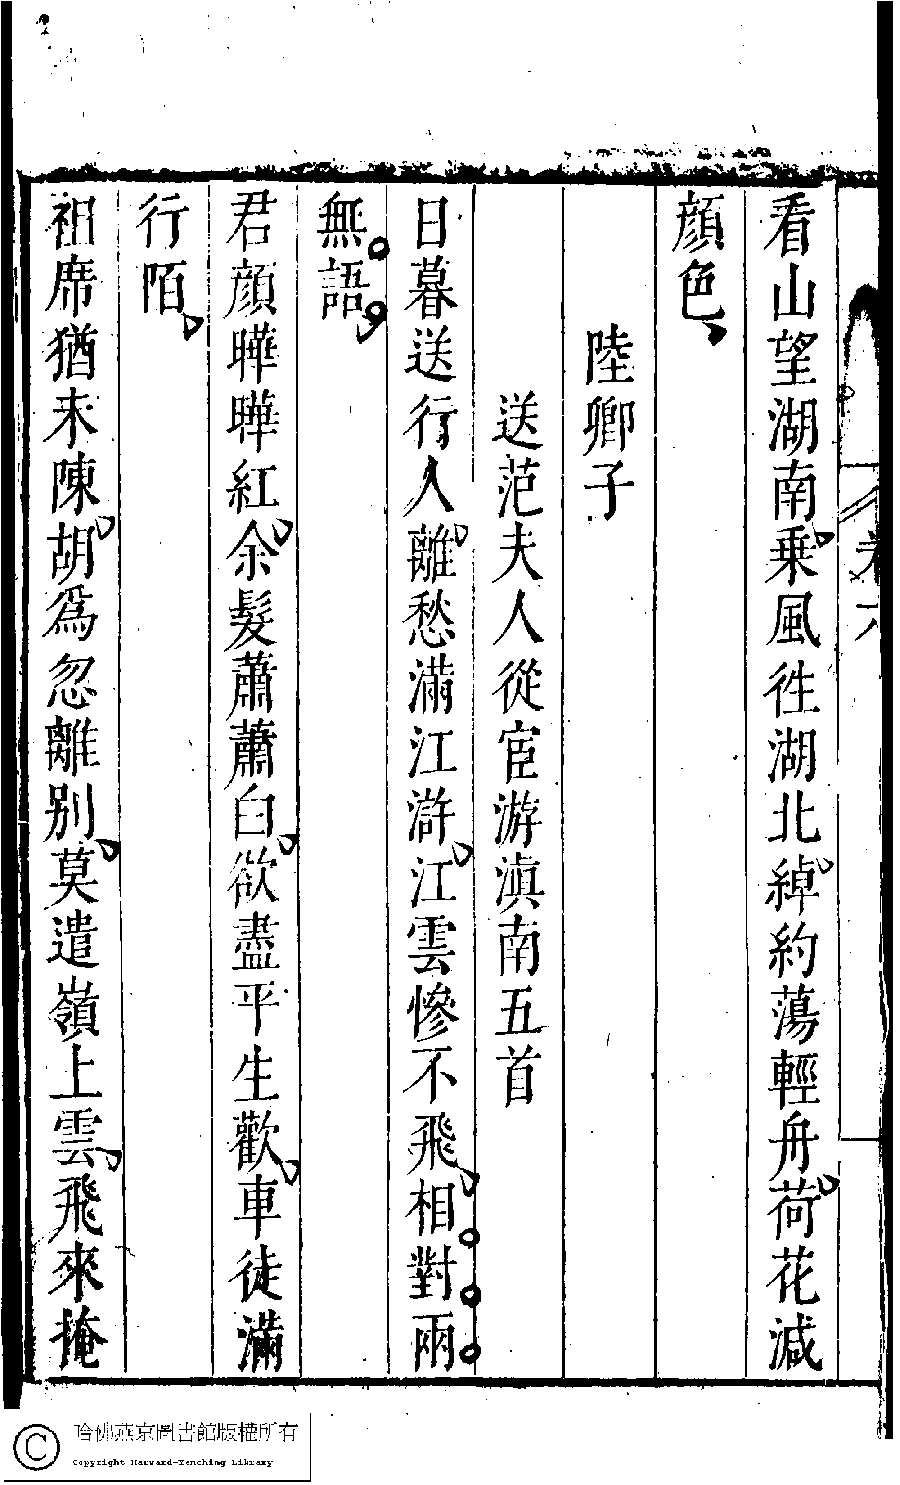 看山望湖南乗風徃湖北綽約蕩輕舟荷花減
顔色
陸卿子
送范夫人從宦游滇南五首
日暮送行人離愁滿江滸江雲慘不飛相對兩
無語
君顔曄曄紅余髮蕭蕭白欲盡平生歡車徒滿
行陌
祖席猶未陳胡爲忽離别莫遣嶺上雲飛來掩
哈佛燕京圖書館版權所有
Copyright Harvard-Yenching Library